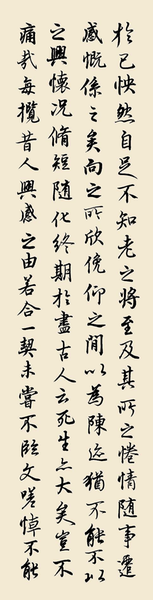 於已怏然自足不知老之將至及其所之惓情隨事遷
感慨係之矣向之所欣俛仰之間以為陳迹猶不能不以
之興懷况脩短隨化終期於盡古人云死生亦大矣豈不
痛哉每攬昔人興感之由若合一契未嘗不臨文嗟悼不能